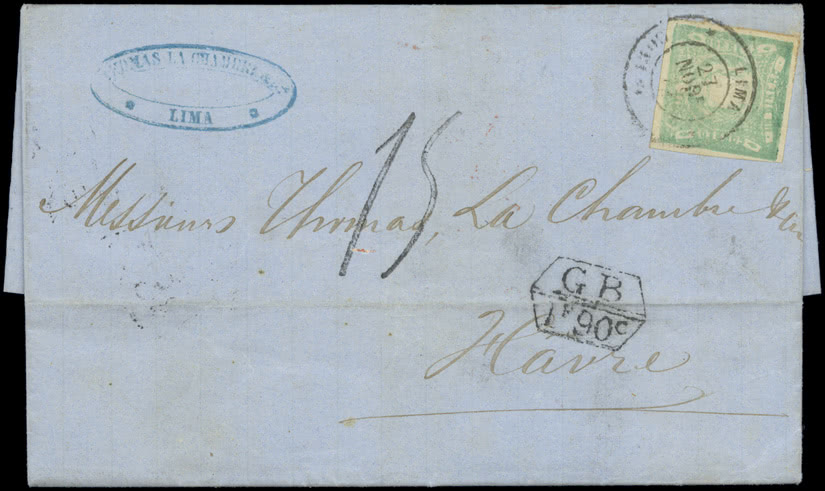 THOMAS LA CHAMBRE & Cº
LIMA
LIMA
27
NOBE
15
Messieurs Thomas, La Chambre & Cie
GB
1F 90c
Havre